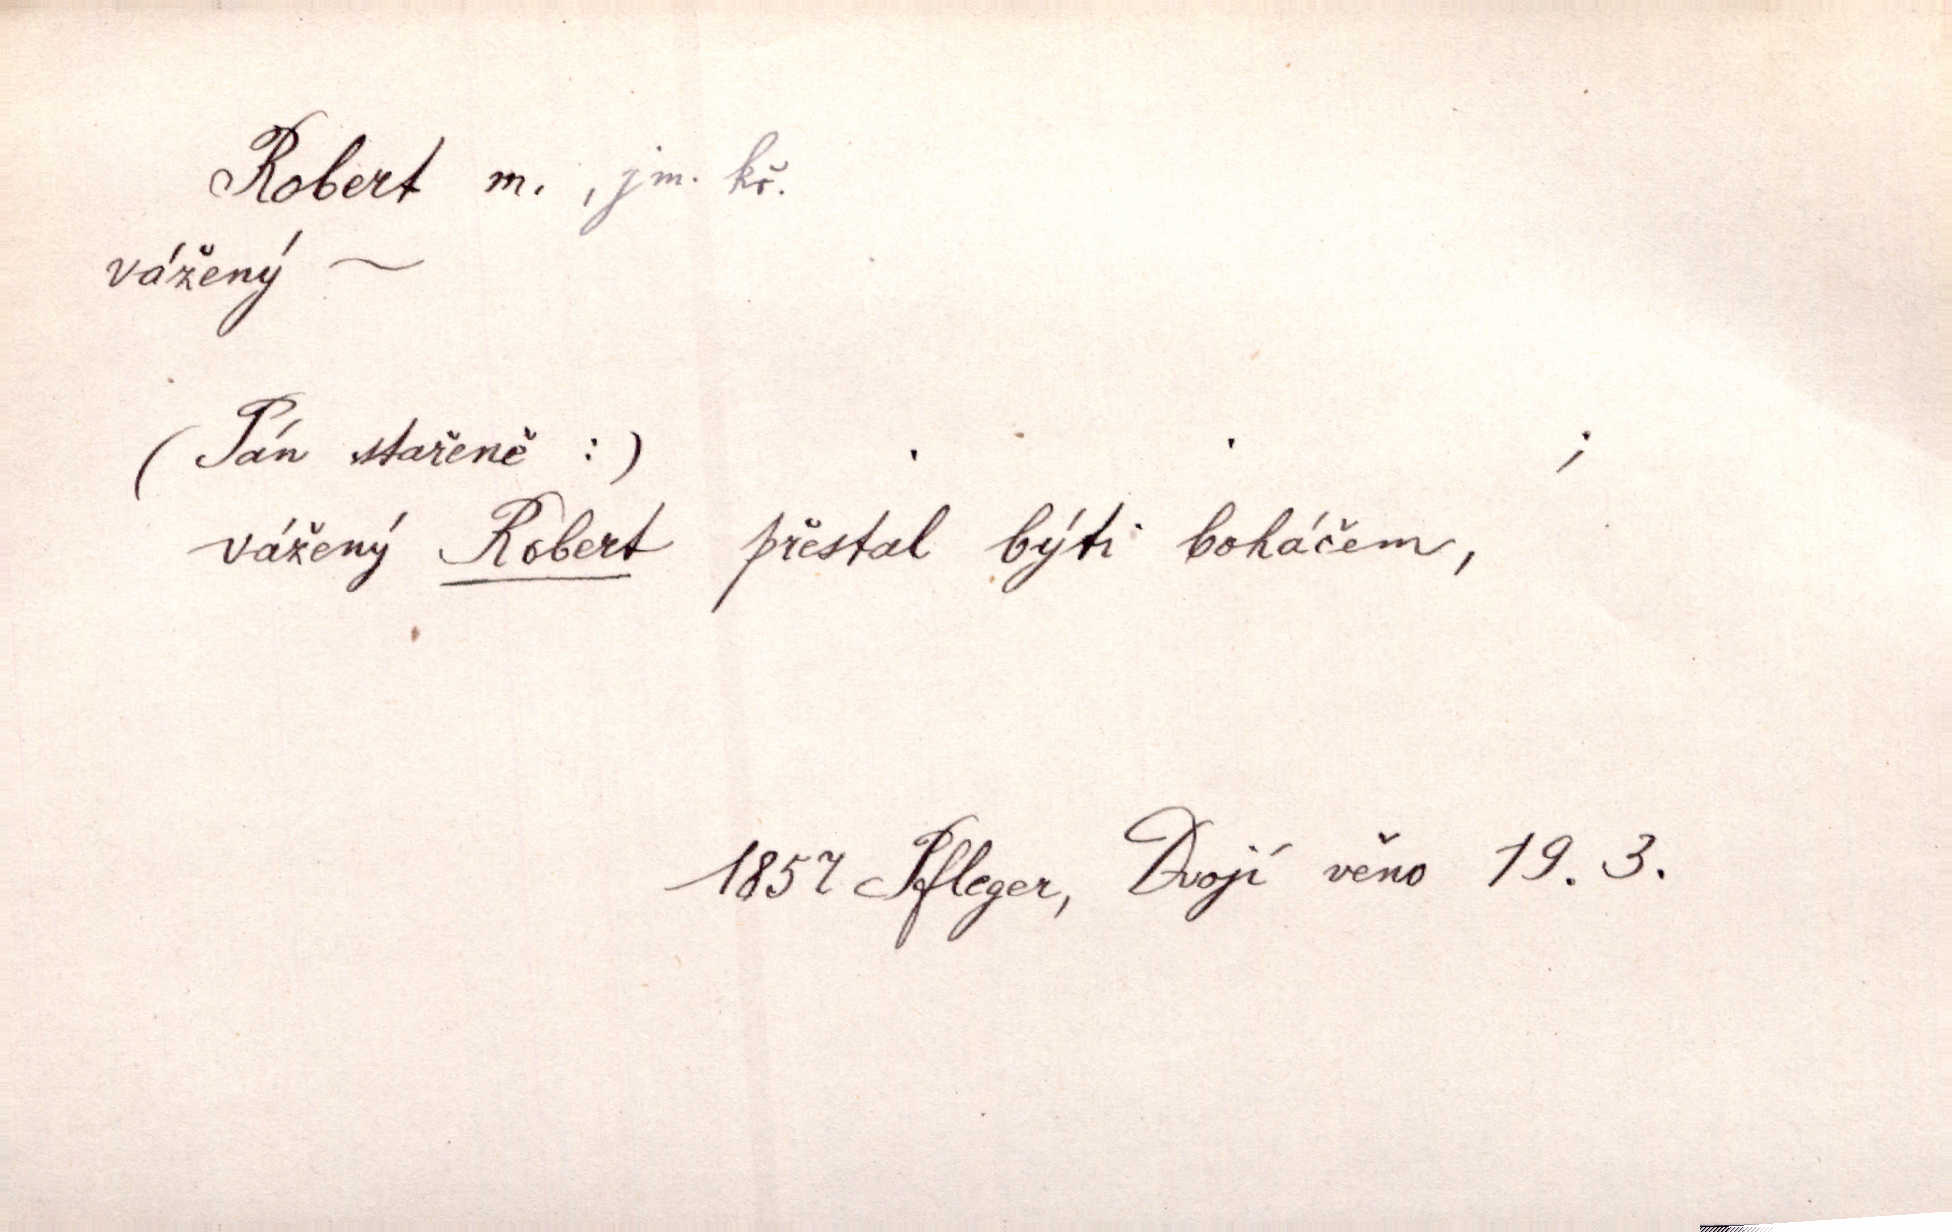 Robert m. , jm. kř.
vážený ~
(Pán stařeně :) . . ;
vážený Robert přestal býti boháčem,
1857 Pfleger, Dvojí věno 19. 3.